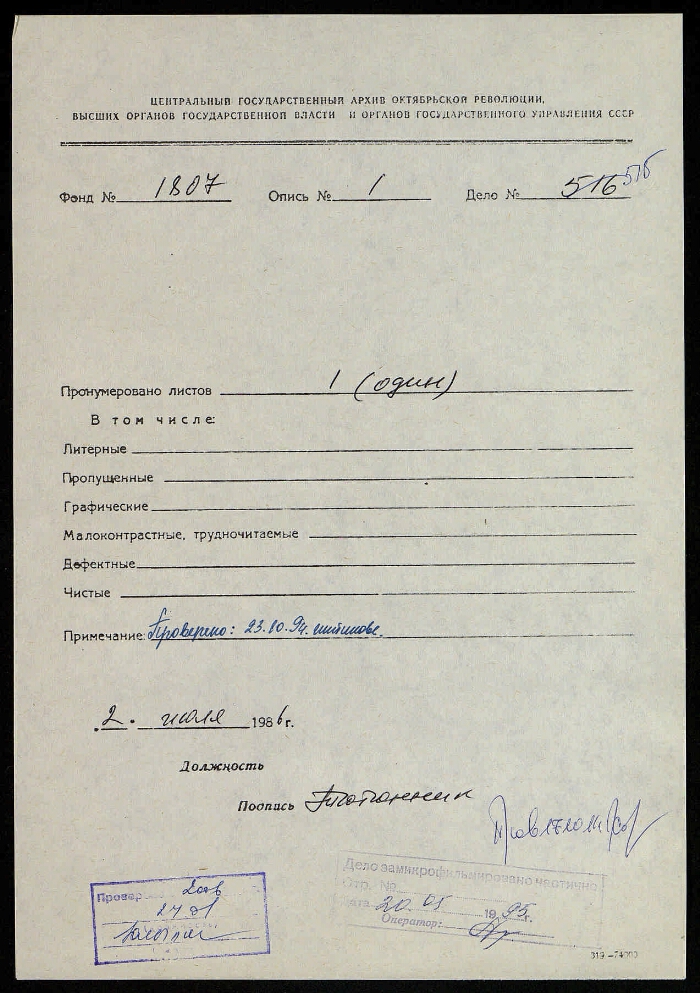 ЦЕНТРАЛЬНЫЙ ГОСУДАРСТВЕННЫЙ АРХИВ ОКТЯБРЬСКОЙ РЕВОЛЮЦИИ,
ВЫСШИХ ОРГАНОВ ГОСУДАРСТВЕННОЙ ВЛАСТИ И ОРГАНОВ ГОСУДАРСТВЕННОГО УПРАВЛЕНИЯ СССР
Фонд № 1807 Опись № 1 Дело № 516 516
Пронумеровано листов 1 (один)
В том числе:
Литерные
Пропущенные
Графические
Малоконтрастные, трудночитаемые
Дефектные
Чистые
Примечание: Проверено: 23.10.94.
2. июля 1986 г.
Должность
Подпись
Дело замикрофильмировано частично
Стр. №
Провер
Дата 20 05 1995 г.
Оператор: